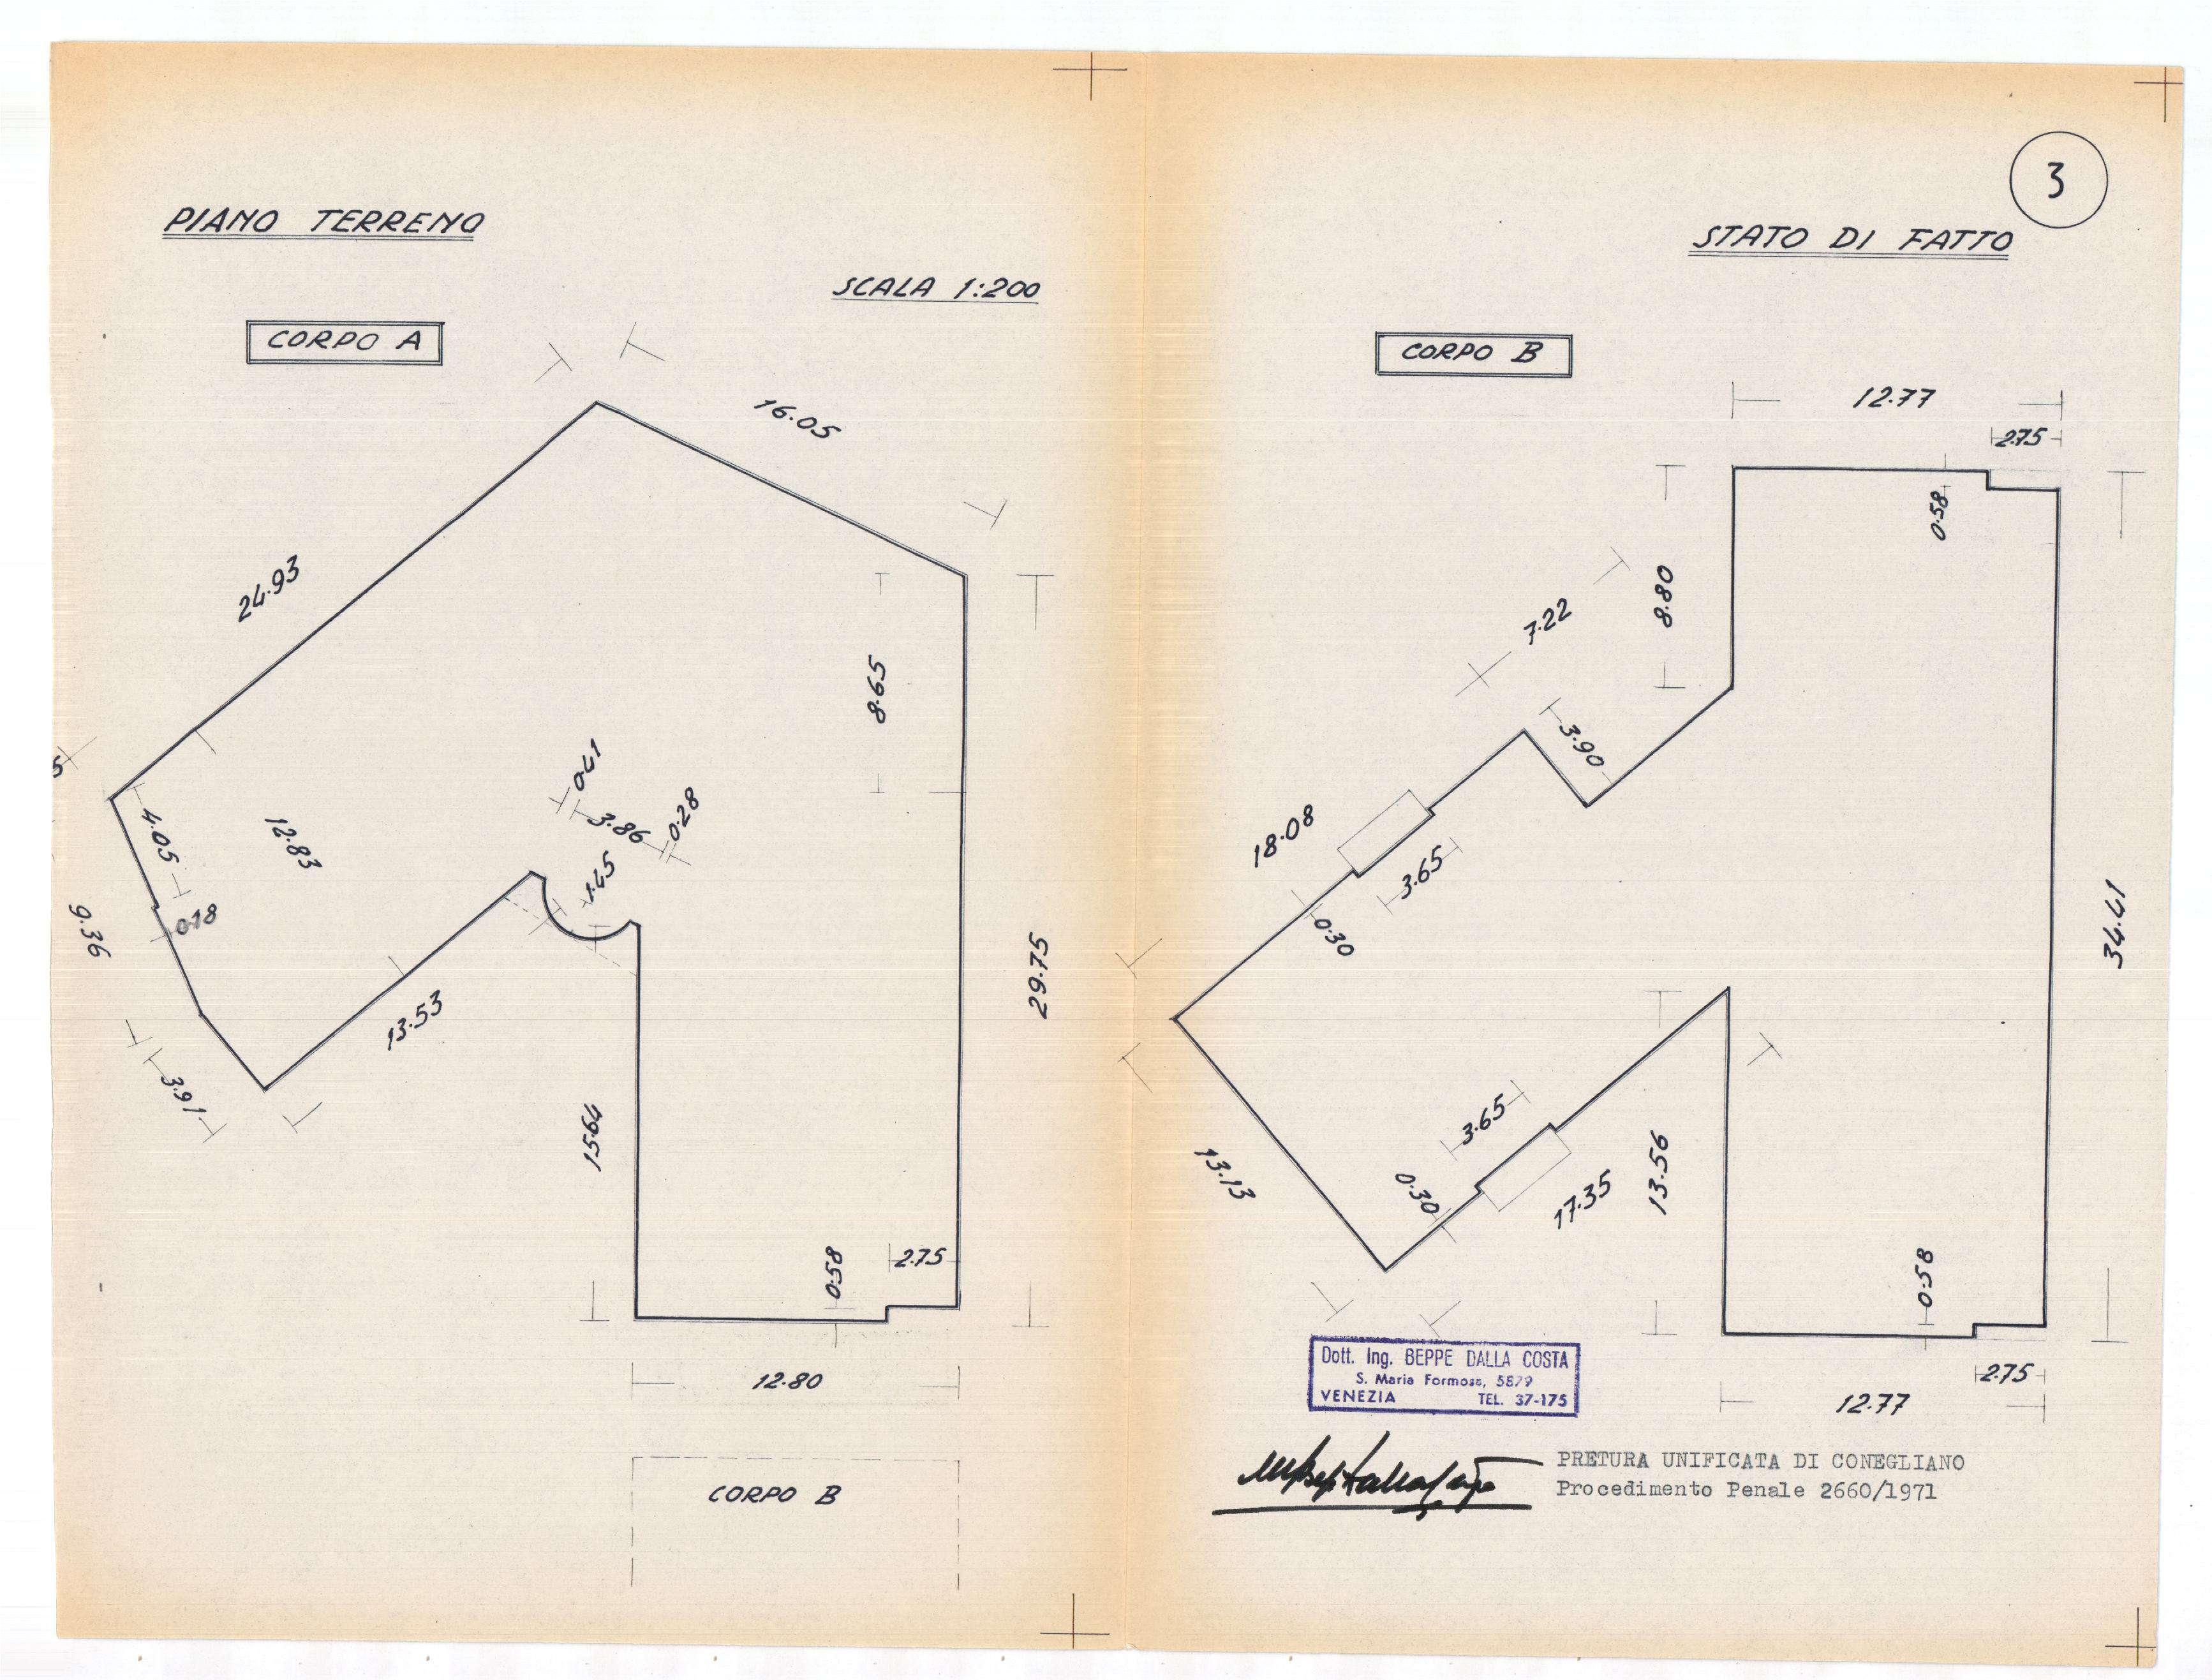 3
PIANO TERRENO
STATO DI FATTO
SCALA 1:200
CORPO A
CORPO B
16.05
24.93
8.65
0.41
3.86
0.28
1.45
5
4.05
12.83
0.18
9.36
13.53
3.91
15.94
29.75
0.58
2.75
12.80
CORPO B
12.77
2.75
0.58
8.80
7.22
3.90
18.08
3.65
0.30
34.41
3.65
13.13
0.30
17.35
13.56
0.58
2.75
12.77
Dott. Ing. BEPPE DALLA COSTA
S. Maria Formosa, 5879
VENEZIA TEL. 37-175
PRETURA UNIFICATA DI CONEGLIANO
Procedimento Penale 2660/1971